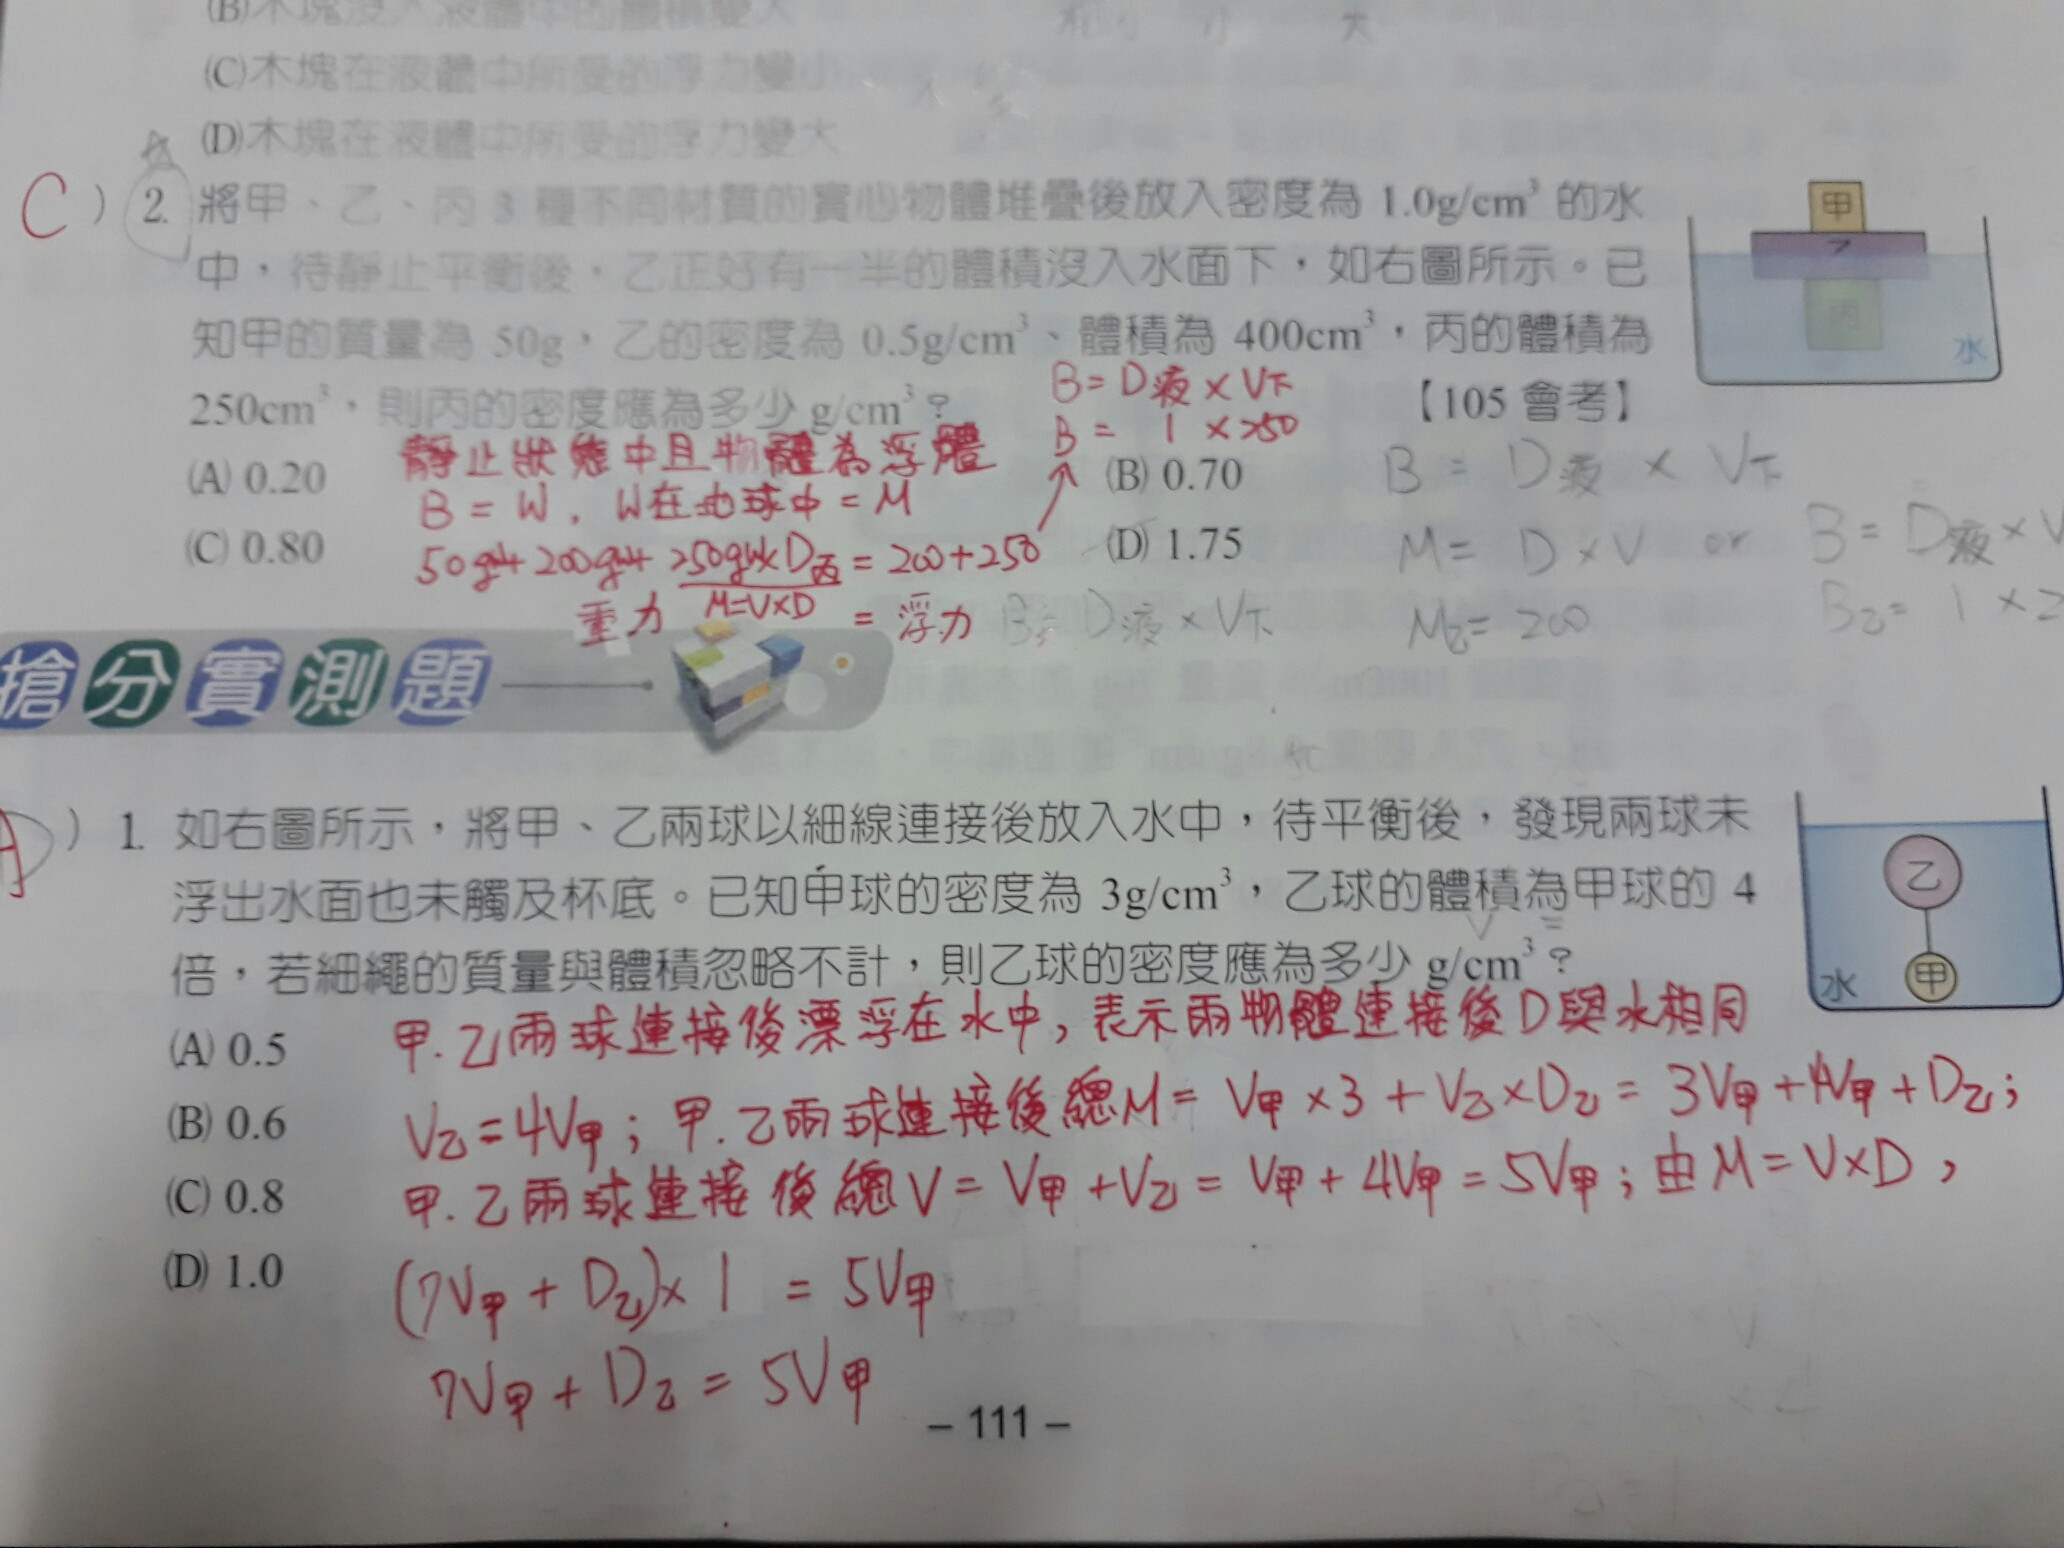 (B)木塊沒入液體中的體積變大
(C)木塊在液體中所受的浮力變小
(D)木塊在液體中所受的浮力變大
大
C ) 2. 將甲、乙、丙 3 種不同材質的實心物體堆疊後放入密度為 1.0g/cm³ 的水
中，待靜止平衡後，乙正好有一半的體積沒入水面下，如右圖所示。已
知甲的質量為 50g，乙的密度為 0.5g/cm³、體積為 400cm³，丙的體積為
250cm³，則丙的密度應為多少 g/cm³？
【105 會考】
甲
乙
丙
水
B = D液 × V下
B = 1 × 250
靜止狀態中且物體為浮體
(A) 0.20
(B) 0.70
B = W , W在地球中 = M
(C) 0.80
(D) 1.75
50gw+200gw+250gw×D丙 = 200+250
M=V×D
重力 = 浮力 B = D液 × V下
B = D液 × V下
M = D × V or B = D液 × V
M乙 = 200
B乙 = 1 × 2
搶分實測題
A ) 1. 如右圖所示，將甲、乙兩球以細線連接後放入水中，待平衡後，發現兩球未
浮出水面也未觸及杯底。已知甲球的密度為 3g/cm³，乙球的體積為甲球的 4
V =
倍，若細繩的質量與體積忽略不計，則乙球的密度應為多少 g/cm³？
乙
甲
水
(A) 0.5
甲.乙兩球連接後漂浮在水中,表示兩物體連接後D與水相同
(B) 0.6
V乙=4V甲；甲.乙兩球連接後總M= V甲×3+V乙×D乙= 3V甲+4V甲+D乙；
(C) 0.8
甲.乙兩球連接後總V= V甲+V乙= V甲+4V甲=5V甲；由M=V×D，
(D) 1.0
(7V甲+D乙)×1 = 5V甲
7V甲+D乙=5V甲
– 111 –